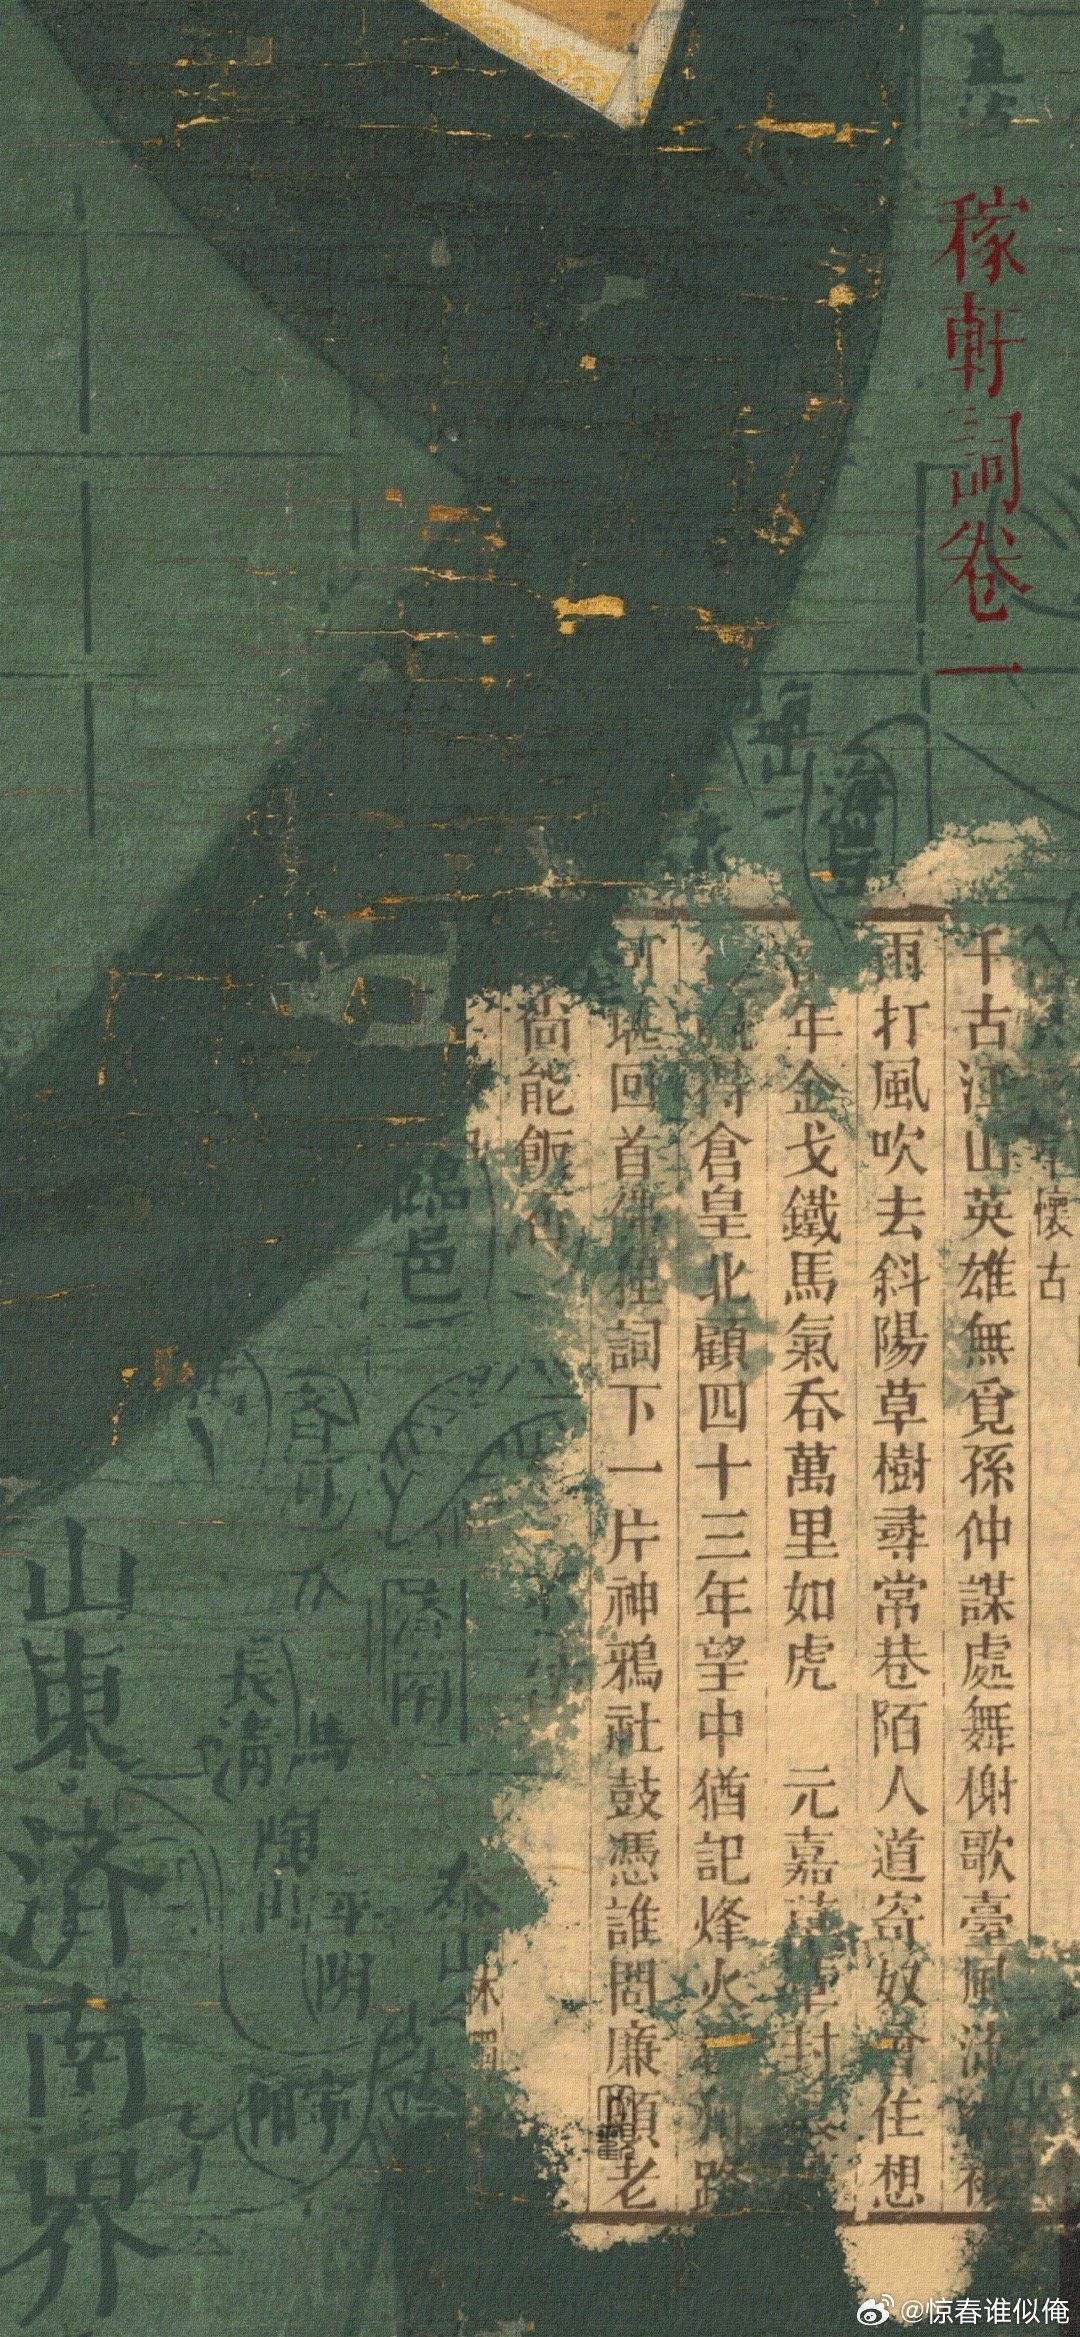 稼軒詞卷一
懷古
千古江山英雄無覓孫仲謀處舞榭歌臺風流
雨打風吹去斜陽草樹尋常巷陌人道寄奴曾住想
年金戈鐵馬氣吞萬里如虎 元嘉草封
得倉皇北顧四十三年望中猶記烽火路
堪回首佛狸詞下一片神鴉社鼓憑誰問廉頗老
尚能飯否
海豐
臨邑
濟南
長清
陶山
平陰
泰山
山東濟南界
@惊春谁似俺